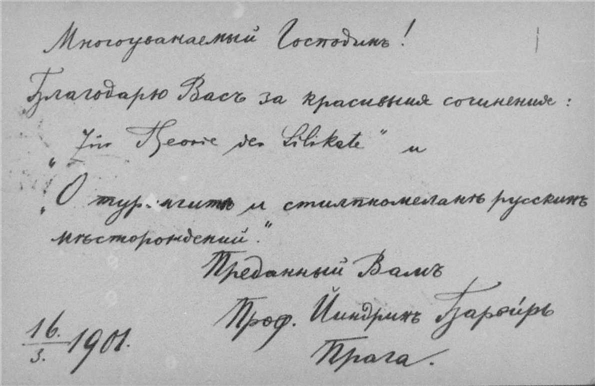 Многоуважаемый Господинъ!
Благодарю Васъ за красивыя сочиненія:
„Zur Theorie der Silikate“ и
„О турингитѣ и стилпномеланѣ русскихъ
мѣсторожденій.“
Преданный Вамъ
Проф. Йиндрих
Прага.
16./3. 1901.